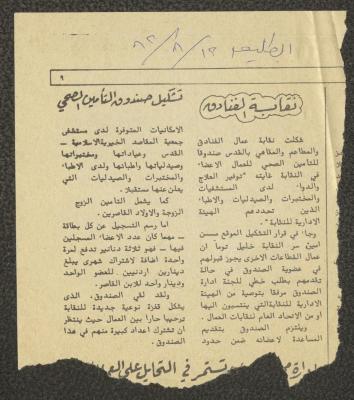 الطليعة ١٢/٨/٨٢
٩
نقابة الفنادق
تشكيل صندوق التأمين الصحي
شكلت نقابة عمال الفنادق
والمطاعم والمقاهي بالقدس صندوقا
للتأمين الصحي للعمال الاعضاء
في النقابة غايته "توفير العلاج
والدواء لدى المستشفيات
والمختبرات والصيدليات والاطباء
الذين تحددهم الهيئة
الادارية للنقابة".
وجاء في قرار التشكيل الموقع من
امين سر النقابة خليل توما ان
عمال القطاعات الاخرى يجوز قبولهم
في عضوية الصندوق في حالة
تقدمهم بطلب خطي للجنة ادارة
الصندوق مرفقا بتوصية من الهيئة
الادارية للنقابة التي ينتسبون اليها
او من الاتحاد العام لنقابات العمال.
ويلتزم الصندوق بتقديم
المساعدة لاعضائه ضمن حدود
الامكانيات المتوفرة لدى مستشفى
جمعية المقاصد الخيرية الاسلامية -
القدس وعياداتها ومختبراتها
وصيدلياتها واطبائها ولدى الاطباء
والمختبرات والصيدليات التي
يعلن عنها مستقبلا.
كما يشمل التأمين الزوج
الزوجة والاولاد القاصرين.
اما رسم التسجيل عن كل بطاقة
- مهما كان عدد الاعضاء المسجلين
فيها - فهو ثلاثة دنانير تدفع لمرة
واحدة اضافة لاشتراك شهري يبلغ
دينارين اردنيين للعضو الواحد
ودينار واحد للابن القاصر.
ولقد لقي الصندوق، الذي
يشكل قفزة نوعية جديدة للنقابة
ترحيبا حارا بين العمال حيث ينتظر
ان تشترك اعداد كبيرة منهم في هذا
الصندوق.
تستمر في التحايل على